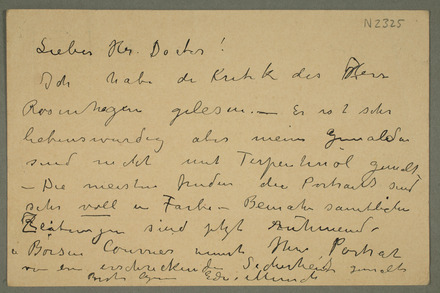 N2325
Lieber Hr. Doctor!
Ich habe die Kritik des Herr
Rosenhagen gelesen. — Er ist sehr
liebenswürdig aber meine Gemälde
sind nicht mit Terpentinöl gemalt
— Die meisten finden die Portraits sind
sehr voll in Farbe — Beinahe sämtliche
Zeitungen sind jetzt rühmend.
Börsen Courrier nennt Ihr Portrait
von einer erschreckenden Sicherheit gemalt
Besten Ihr Edv. Munch